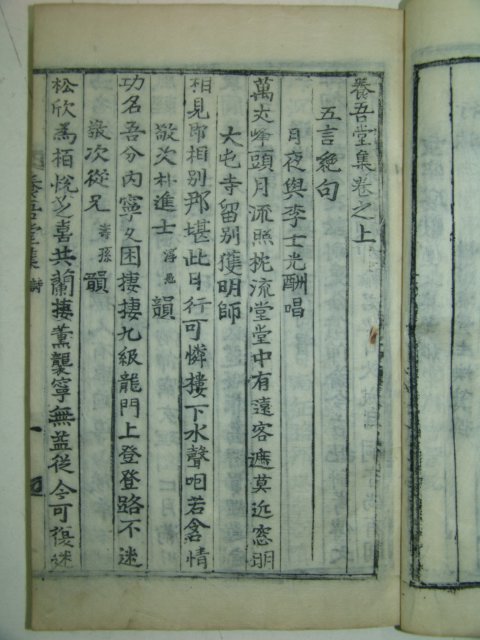 養吾堂集卷之上
五言絶句
月夜與李士光酬唱
萬丈峰頭月流照枕流堂堂中有遠客遮莫近窓明
大屯寺留別獲明師
相見即相別那堪此日行可憐樓下水聲咽若含情
敬次朴進士韻
功名吾分內寧久困捿捿九級龍門上登登路不迷
敬次從兄壽孫韻
松欣爲栢悅芝喜共蘭捿薰襲寧無益從今可復迷
養吾堂集 詩 一